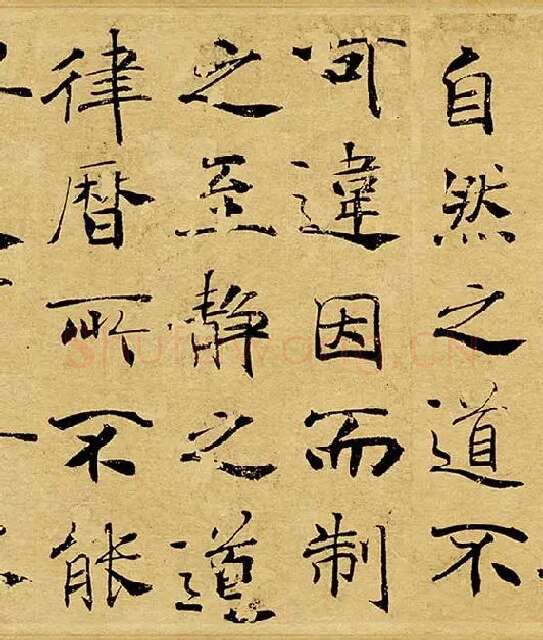 自然之道不
可違因而制
之至静之道
律曆所不能